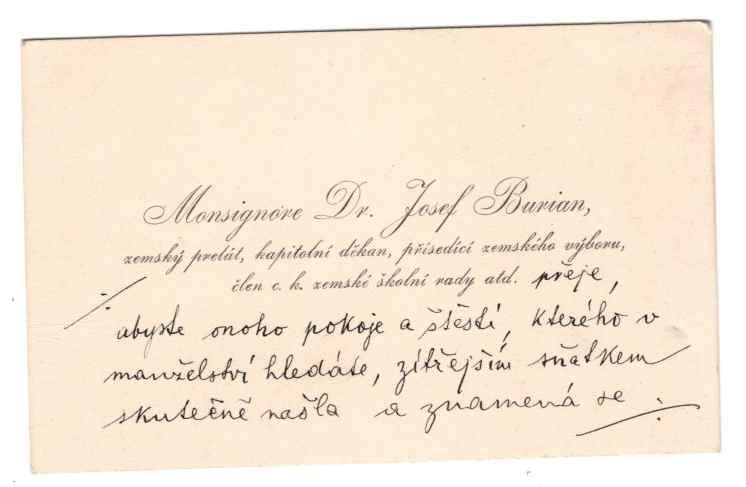 Monsignore Dr. Josef Burian,
zemský prelát, kapitolní děkan, přísedící zemského výboru,
člen c. k. zemské školní rady atd. přeje,
abyste onoho pokoje a štěstí, kterého v
manželství hledáte, zítřejším sňatkem
skutečně našla a znamená se